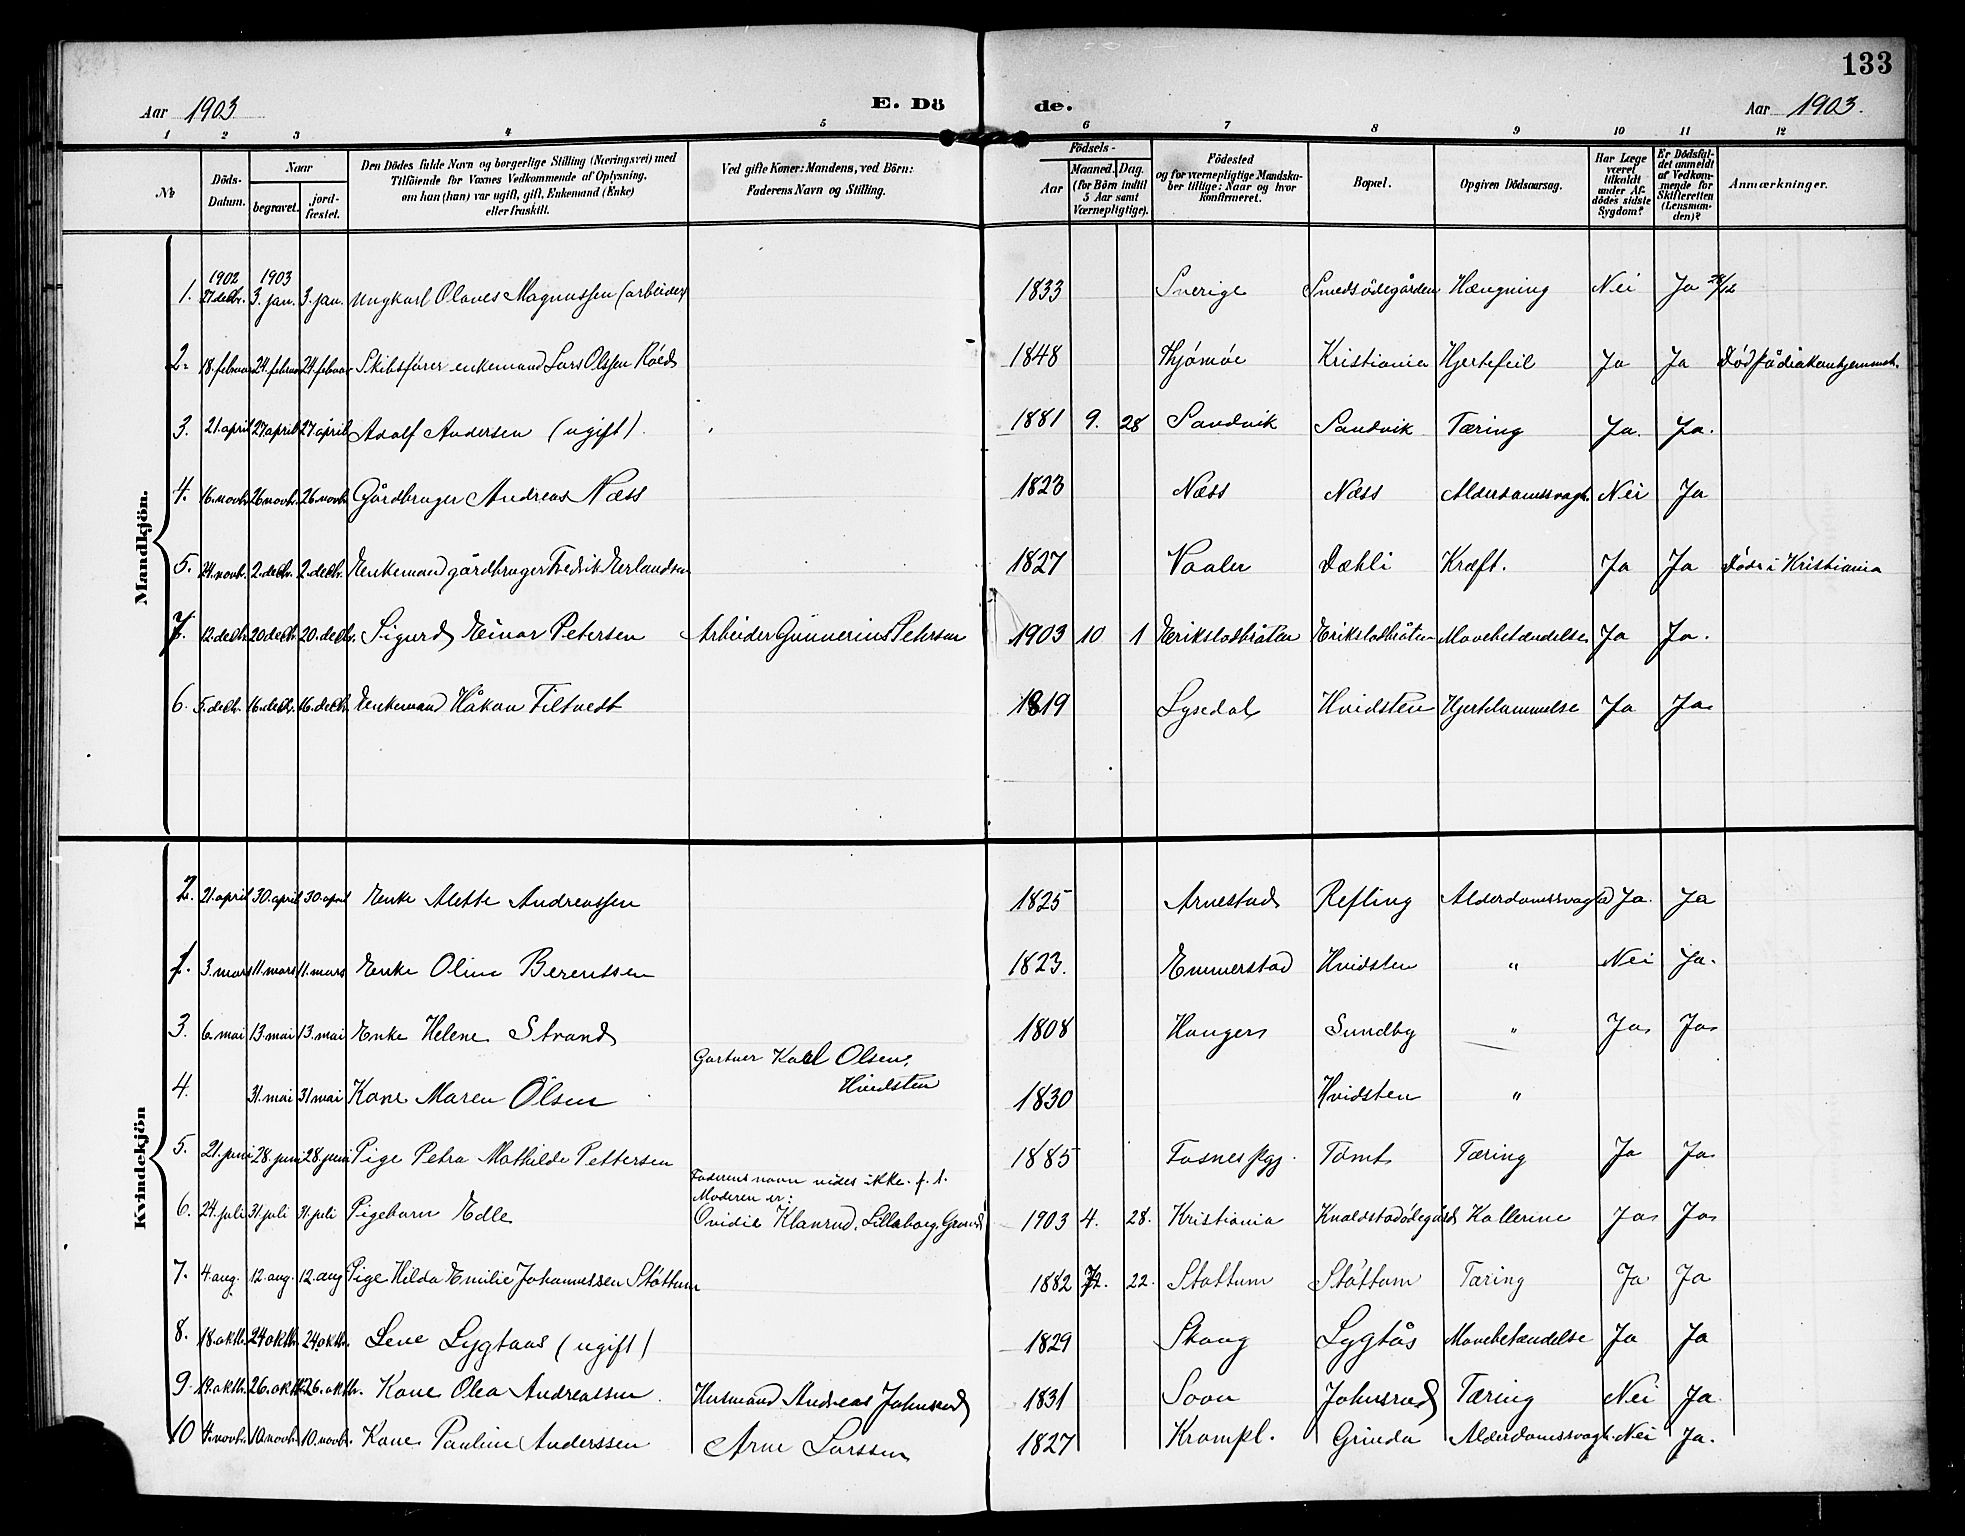 133
Aar 1903
E. Dö
de.
Aar 1903.
1 2 3 4 5 6 7 8 9 10 11 12
№
Döds-
Datum.
Naar
begravet.
jord-
fæstet.
Den Dödes fulde Navn og borgerlige Stilling (Næringsvei) med
Tilföiende for Voxnes Vedkommende af Oplysning,
om han (hun) var ugift, gift, Enkemand (Enke)
eller fraskilt.
Ved gifte Koner: Mandens, ved Börn:
Faderens Navn og Stilling.
Födsels-
Aar
Maaned. Dag.
(for Börn indtil
5 Aar samt
Værnepligtige).
Födested
og for værnepligtige Mandska-
ber tillige: Naar og hvor
konfirmeret.
Bopæl.
Opgiven Dödsaarsag.
Har Læge
været
tilkaldt
under Af-
dödes sidste
Sygdom?
Er Dödsfal-
det anmeldt
af Vedkom-
mende for
Skifteretten
(Lensman-
den)?
Anmærkninger.
Mandkjön.
1902 1903
1. 27 decbr. 3. jan. 3. jan. Ungkarl Olaves Magnussen (arbeider) 1833 Sverige Smedsödegården Hængning Nei Ja 28/12
2. 18. februar 24. februar 24. februar Skibsfører enkemand Lars Olssen Röed 1848 Thjömöe Kristiania Hjertefeil Ja Ja Död på diakonhjemmet.
3. 21. april 27 april 27 april Adolf Andersen (ugift) 1881 9. 28 Sandvik Sandvik Tæring Ja. Ja.
4. 16. novbr. 26 novbr. 26. novbr. Gårdbruger Andreas Næss 1823 Næss Næss Alderdomssvagh. Nei Ja
5. 24. novb. 2. decbr. 2. decbr. Enkemand gårdbruger Fredrik Erlandsen 1827 Vaaler Dæhli Kræft. Ja Ja Döde i Kristiania
7. 12. decbr. 20 decbr. 20. decbr. Sigurd Einar Petersen Arbeider Gunnerius Petersen 1903 10 1 Erikstadbråten Erikstadbråten Mavebetændelse Ja Ja.
6. 5. decbr. 16. decbr. 16. decbr. Enkemand Håkon Filtvedt 1819 Lysedal Hvidsten Hjertelammelse Ja Ja
Kvindekjön
2. 21. april 30. april 30. april Enke Alette Andreassen 1825 Arnestad Refling Alderdomssvaghd Ja. Ja
1. 3. mars 11. mars 11. mars Enke Oline Berentsen 1823. Emmerstad Hvidsten " Nei Ja.
3. 6. mai 13. mai 13. mai Enke Helene Strand 1808 Hauger Sundby " Ja Ja
Gartner Karl Olsen,
Hvidsten
4. 31. mai 31 mai Kone Maren Olsen 1830 Hvidsten "
5. 21. juni 28. juni 28. juni Pige Petra Mathilde Pettersen 1885 Fosnes pgj. Tomt Tæring Ja Ja
Faderens navn vides ikke.
Moderen er:
6. 24. juli 31. juli 31. juli Pigebarn Edle Ovidie Klanrud, Lilleborg, 1903 4. 28. Kristiania Knaldstadödegård Kallerine Ja Ja
7. 4. aug. 12. aug. 12. aug Pige Hilda Emilie Johannessen Støttum 1882 12. 22. Støttum Støttum Tæring Ja Ja
8. 18. oktb. 24 oktb. 24 oktb. Lene Lygtaas (ugift) 1829 Skaug Lygtås Mavebetændelse Ja Ja
9. 19. oktb. 26. oktb. 26. oktbr. Kone Olea Andreassen Husmand Andreas Johnsrud 1831 Soon Johnsrud Tæring Nei Ja
10 4. novbr. 10. novbr. 10. novbr. Kone Pauline Anderssen Arne Larssen 1827 Krampl. Grinda Alderdomssvagh. Nei Ja.